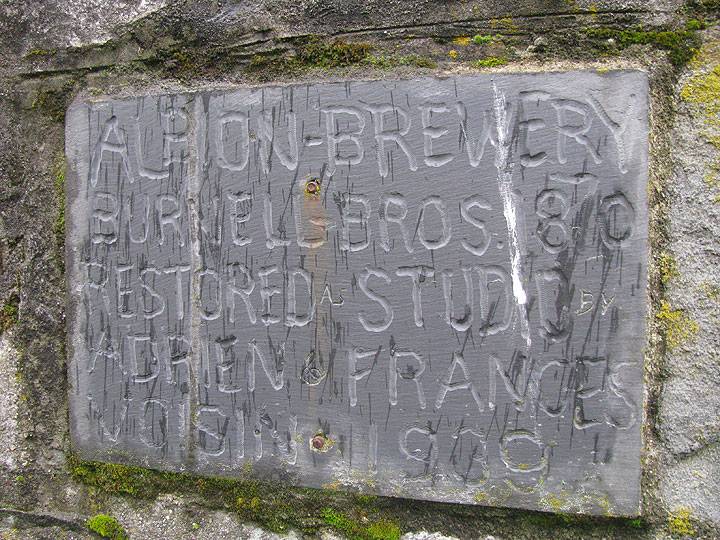 ALBION-BREWERY
BURNELL-BROS. 1870
RESTORED AS STUDIO BY
ADRIEN & FRANCES
VOISIN 1939